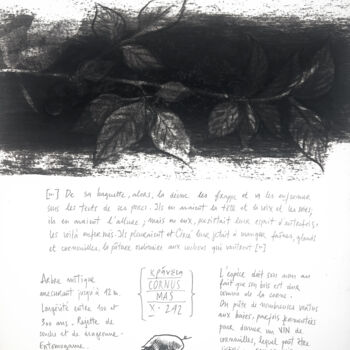 [...] De sa baguette, alors, la déesse les frappe et va les enfermer
sous les tects de ses porcs. Ils en avaient la tête et la voix et les soies,
ils en avaient l'allure ; mais en eux, persistait leur esprit d'autrefois.
les voilà enfermés. Ils pleuraient et Circé leur jetait à manger faînes, glands
et cornouilles, la pâture ordinaire aux cochons qui vautrent [...]
Arbre rustique
mesurant jusqu'à 12 m.
Longévité entre 100 et
300 ans. Rejette de
souche et de
Entomogame.
κράνεια
CORNUS
MAS
X. 242
L'espèce doit son nom au
fait que son bois est dur
comme de la corne.
On prête de nombreuses vertus
aux baies, parfois fermentées
pour donner un VIN de
cornouilles, lequel peut être